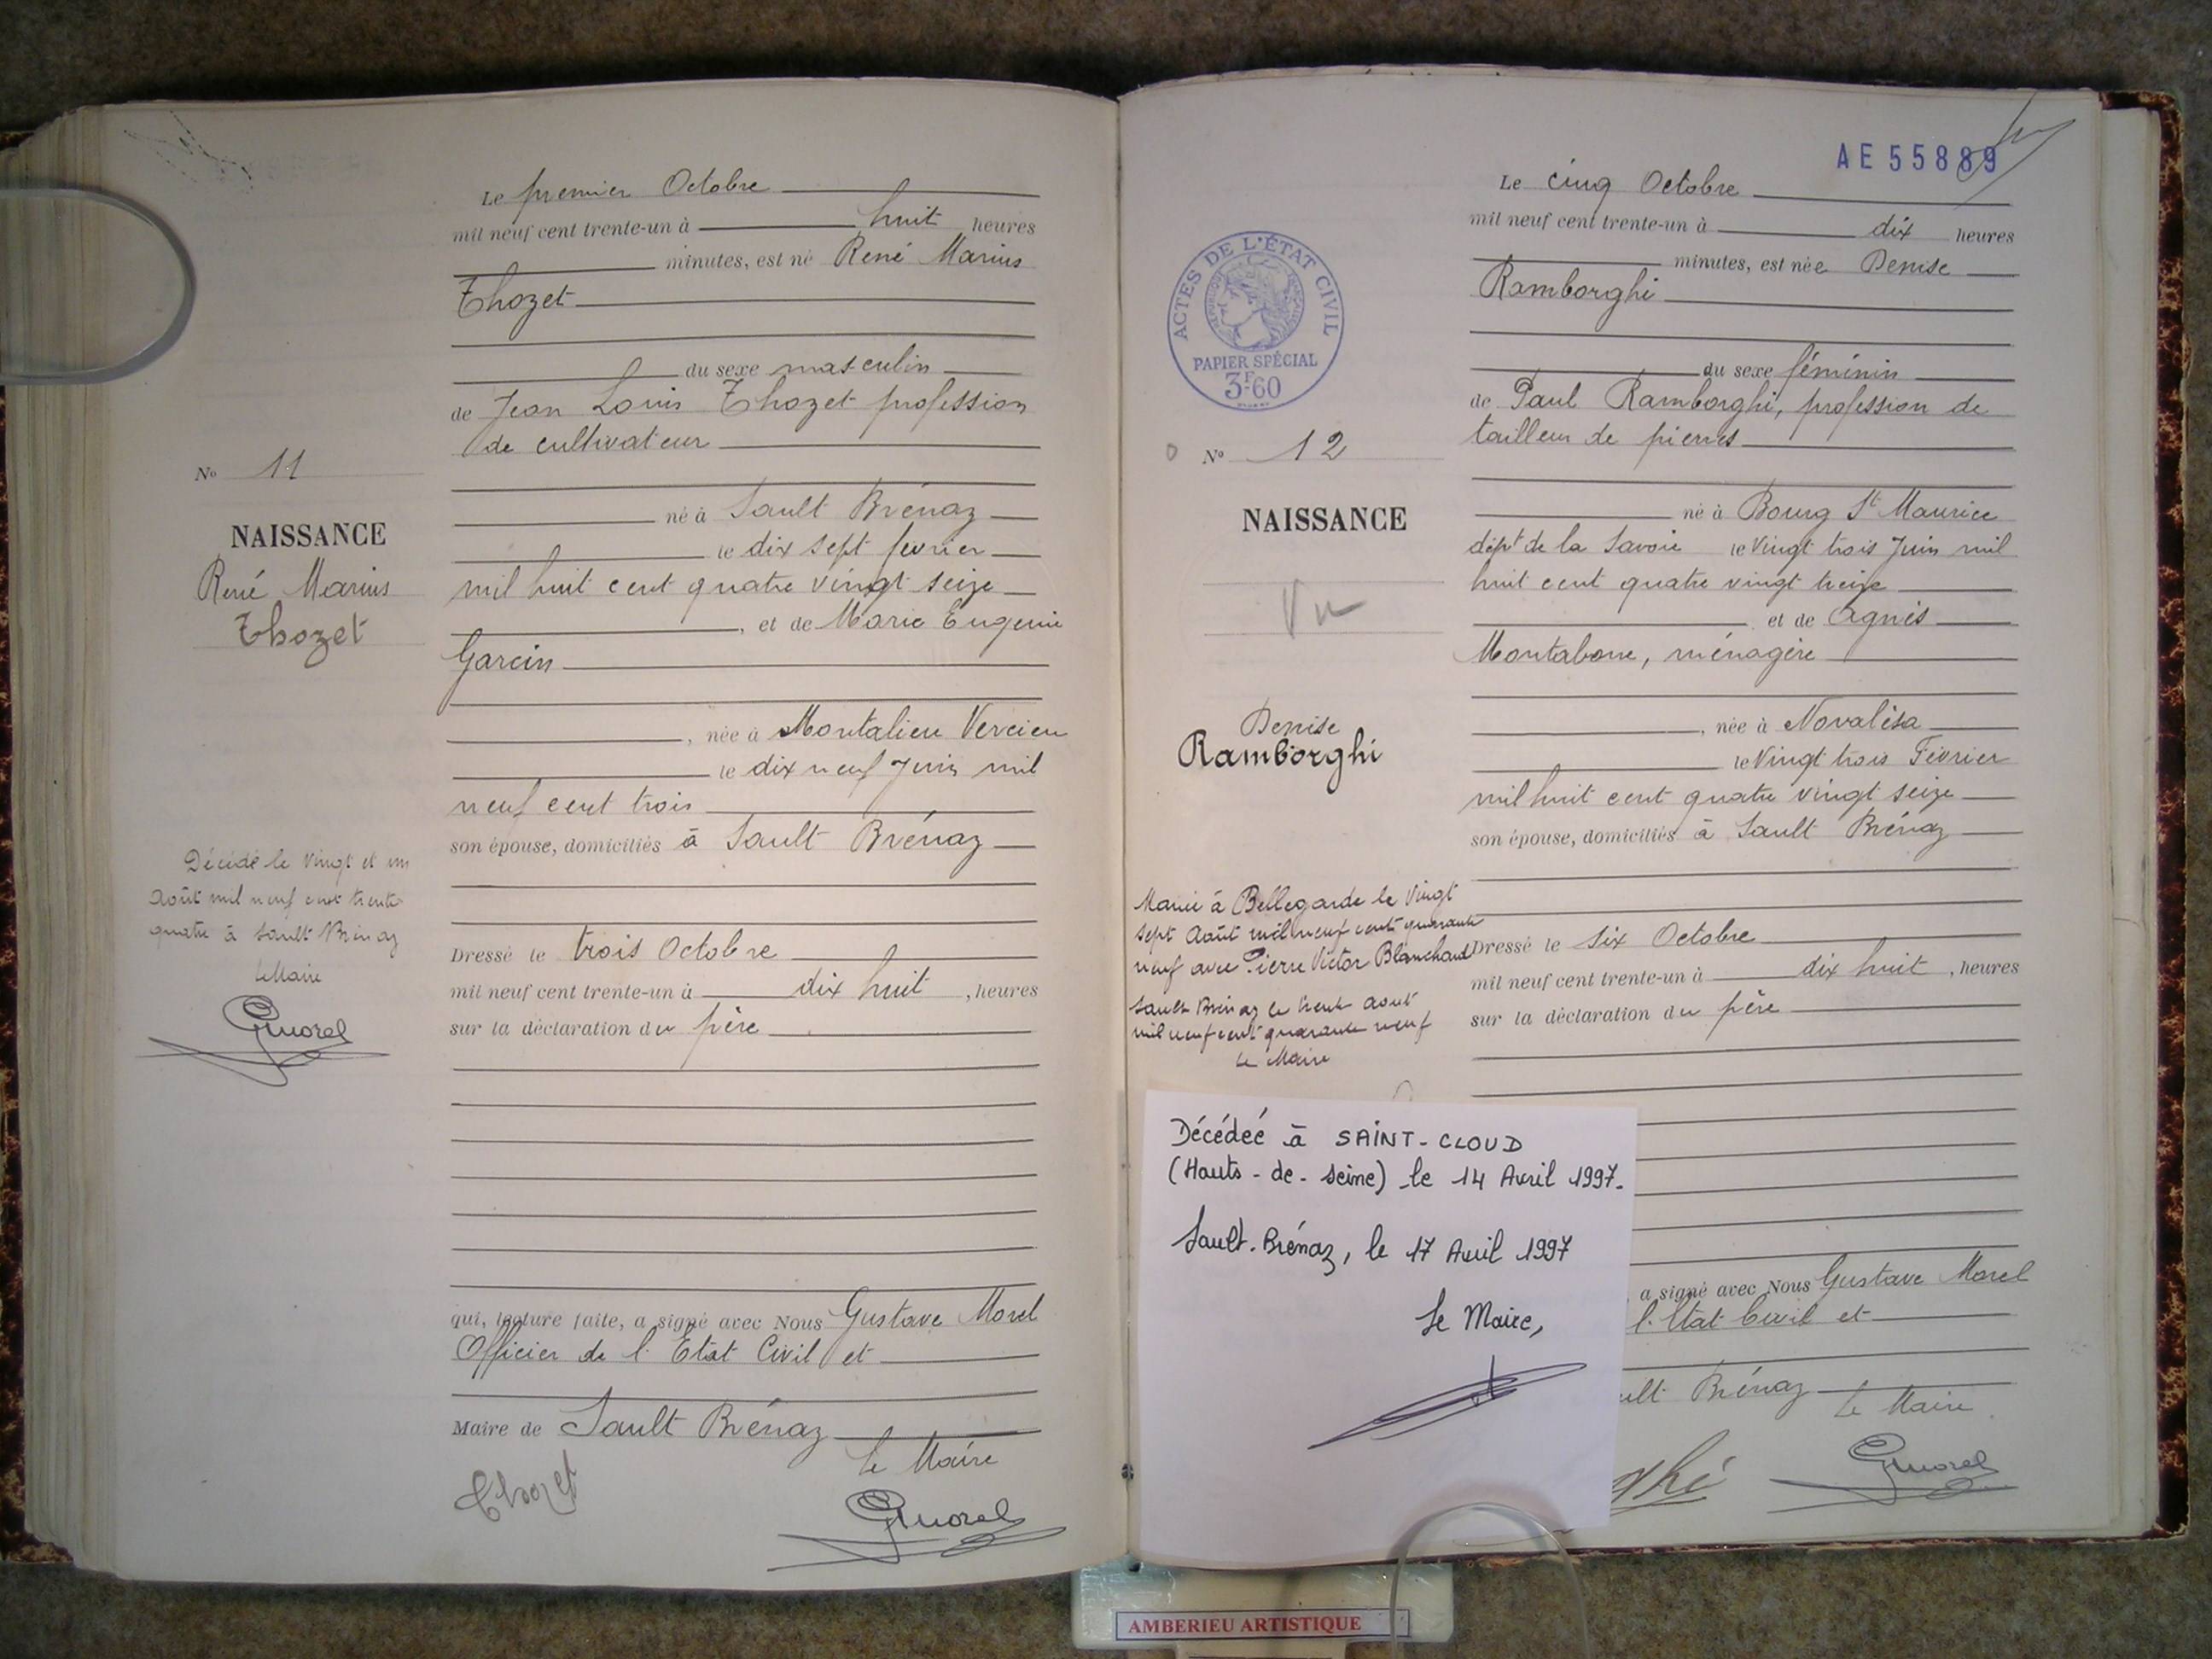 Le premier Octobre
mil neuf cent trente-un à huit heures
minutes, est né René Marius
Thozet
du sexe masculin
de Jean Louis Thozet profession
de cultivateur
né à Sault Brénaz
le dix sept février
mil huit cent quatre vingt seize
, et de Marie Eugenie
Garcin
, née à Montalieu Vercieu
le dix neuf Juin mil
neuf cent trois
son épouse, domiciliés à Sault Brénaz
Dressé le trois Octobre
mil neuf cent trente-un à dix huit, heures
sur la déclaration du père
qui, lecture faite, a signé avec Nous Gustave Morel
Officier de l'Etat Civil et
Maire de Sault Brénaz
Le Maire
Thozet
GMorel
No 11
NAISSANCE
René Marius
Thozet
Décédé le vingt et un
Août mil neuf cent trente
quatre à Sault Brénaz
Le Maire
GMorel
AE 55889
Le cinq Octobre
mil neuf cent trente-un à dix heures
minutes, est née Denise
Ramborghi
du sexe féminin
de Paul Ramborghi, profession de
tailleur de pierres
né à Bourg St Maurice
dépt de la Savoie le Vingt trois Juin mil
huit cent quatre vingt treize
et de Agnès
Montabone, ménagère
, née à Novalèsa
le Vingt trois Février
mil huit cent quatre vingt seize
son épouse, domiciliés à Sault Brénaz
Dressé le six Octobre
mil neuf cent trente-un à dix huit, heures
sur la déclaration du père
a signé avec Nous Gustave Morel
l'Etat Civil et
ult Brénaz
Le Maire
ghi
GMorel
ACTES DE L'ÉTAT CIVIL
RÉPUBLIQUE FRANÇAISE
PAPIER SPÉCIAL
3F60
No 12
NAISSANCE
Vu
Denise
Ramborghi
Mariée à Bellegarde le Vingt
sept Août mil neuf cent quarante
neuf avec Pierre Victor Blanchard
Sault Brénaz le trente Août
mil neuf cent quarante neuf
Le Maire
Décédée à SAINT-CLOUD
(Hauts-de-Seine) le 14 Avril 1997.
Sault-Brénaz, le 17 Avril 1997
Le Maire,
AMBERIEU ARTISTIQUE